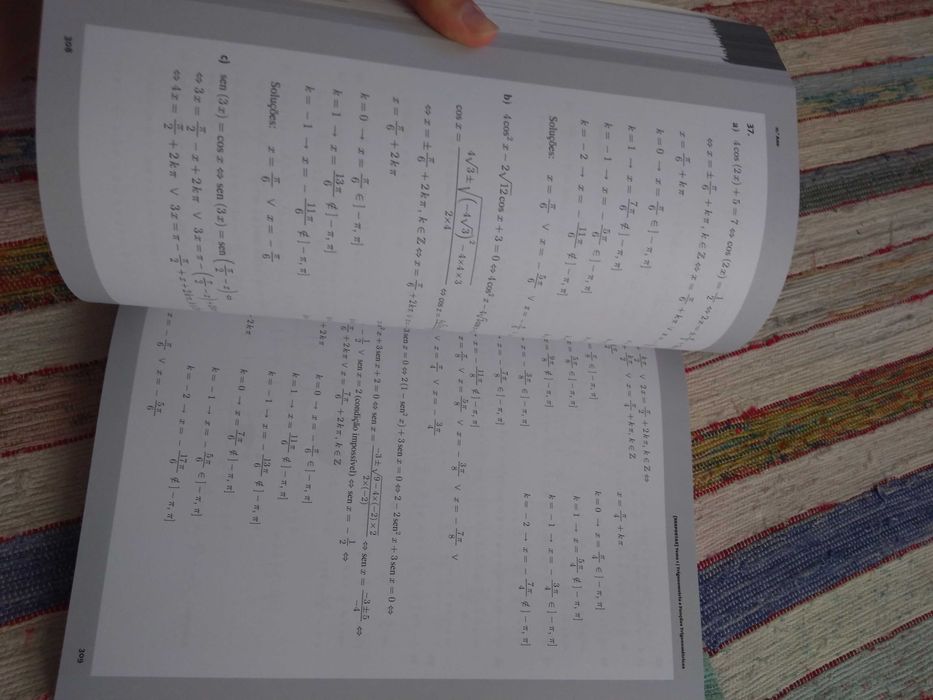 11.º Ano
37.
a) 4 cos (2x) + 5 = 7 ⇔ cos (2x) = 1/2 ⇔ 2x =
⇔ x = ± π/6 + kπ, k ∈ ℤ ⇔ x = π/6 + kπ ∨
x = π/6 + kπ
k = 0 → x = π/6 ∈ ]− π, π]
k = 1 → x = 7π/6 ∉ ]− π, π]
k = − 1 → x = − 5π/6 ∈ ]− π, π]
k = − 2 → x = − 11π/6 ∉ ]− π, π]
Soluções: x = π/6 ∨ x = − 5π/6 ∨ x =
b) 4 cos² x − 2√12 cos x + 3 = 0 ⇔ 4 cos² x − 4√3
cos x = (4√3 ± √((−4√3)² − 4 × 4 × 3)) / (2 × 4) ⇔ cos x =
⇔ x = ± π/6 + 2kπ, k ∈ ℤ ⇔ x = π/6 + 2kπ ∨
x = π/6 + 2kπ
k = 0 → x = π/6 ∈ ]− π, π]
k = 1 → x = 13π/6 ∉ ]− π, π]
k = − 1 → x = − 11π/6 ∉ ]− π, π]
Soluções: x = π/6 ∨ x = − π/6
c) sen (3x) = cos x ⇔ sen (3x) = sen (π/2 − x) ⇔
⇔ 3x = π/2 − x + 2kπ ∨ 3x = π − (π/2 − x) +
⇔ 4x = π/2 + 2kπ ∨ 3x = π − π/2 + x + 2kπ
308
[RESPOSTAS] Tema I | Trigonometria e Funções Trigonométricas
∨ 2x = π/2 + 2kπ, k ∈ ℤ ⇔
∨ x = π/4 + kπ, k ∈ ℤ
x = π/4 + kπ
∈ ]− π, π]
k = 0 → x = π/4 ∈ ]− π, π]
x = 5π/8 ∈ ]− π, π]
k = 1 → x = 5π/4 ∉ ]− π, π]
x = 9π/8 ∉ ]− π, π]
k = − 1 → x = − 3π/4 ∈ ]− π, π]
x = − 3π/8 ∈ ]− π, π]
k = − 2 → x = − 7π/4 ∉ ]− π, π]
x = − 7π/8 ∈ ]− π, π]
x = − 11π/8 ∉ ]− π, π]
x = π/8 ∨ x = 5π/8 ∨ x = − 3π/8 ∨ x = − 7π/8 ∨
∨ x = π/4 ∨ x = − 3π/4
3 sen x = 0 ⇔ 2(1 − sen² x) + 3 sen x = 0 ⇔ 2 − 2 sen² x + 3 sen x = 0 ⇔
sen² x + 3 sen x + 2 = 0 ⇔ sen x = (−3 ± √(9 − 4 × (−2) × 2)) / (2 × (−2)) ⇔ sen x = (−3 ± 5) / −4 ⇔
1/2 ∨ sen x = 2 (condição impossível) ⇔ sen x = − 1/2 ⇔
π/6 + 2kπ ∨ x = 7π/6 + 2kπ, k ∈ ℤ
+ 2kπ
k = 0 → x = − π/6 ∈ ]− π, π]
k = 1 → x = 11π/6 ∉ ]− π, π]
k = − 1 → x = − 13π/6 ∉ ]− π, π]
+ 2kπ
k = 0 → x = 7π/6 ∉ ]− π, π]
k = − 1 → x = − 5π/6 ∈ ]− π, π]
k = − 2 → x = − 17π/6 ∉ ]− π, π]
x = − π/6 ∨ x = − 5π/6
309